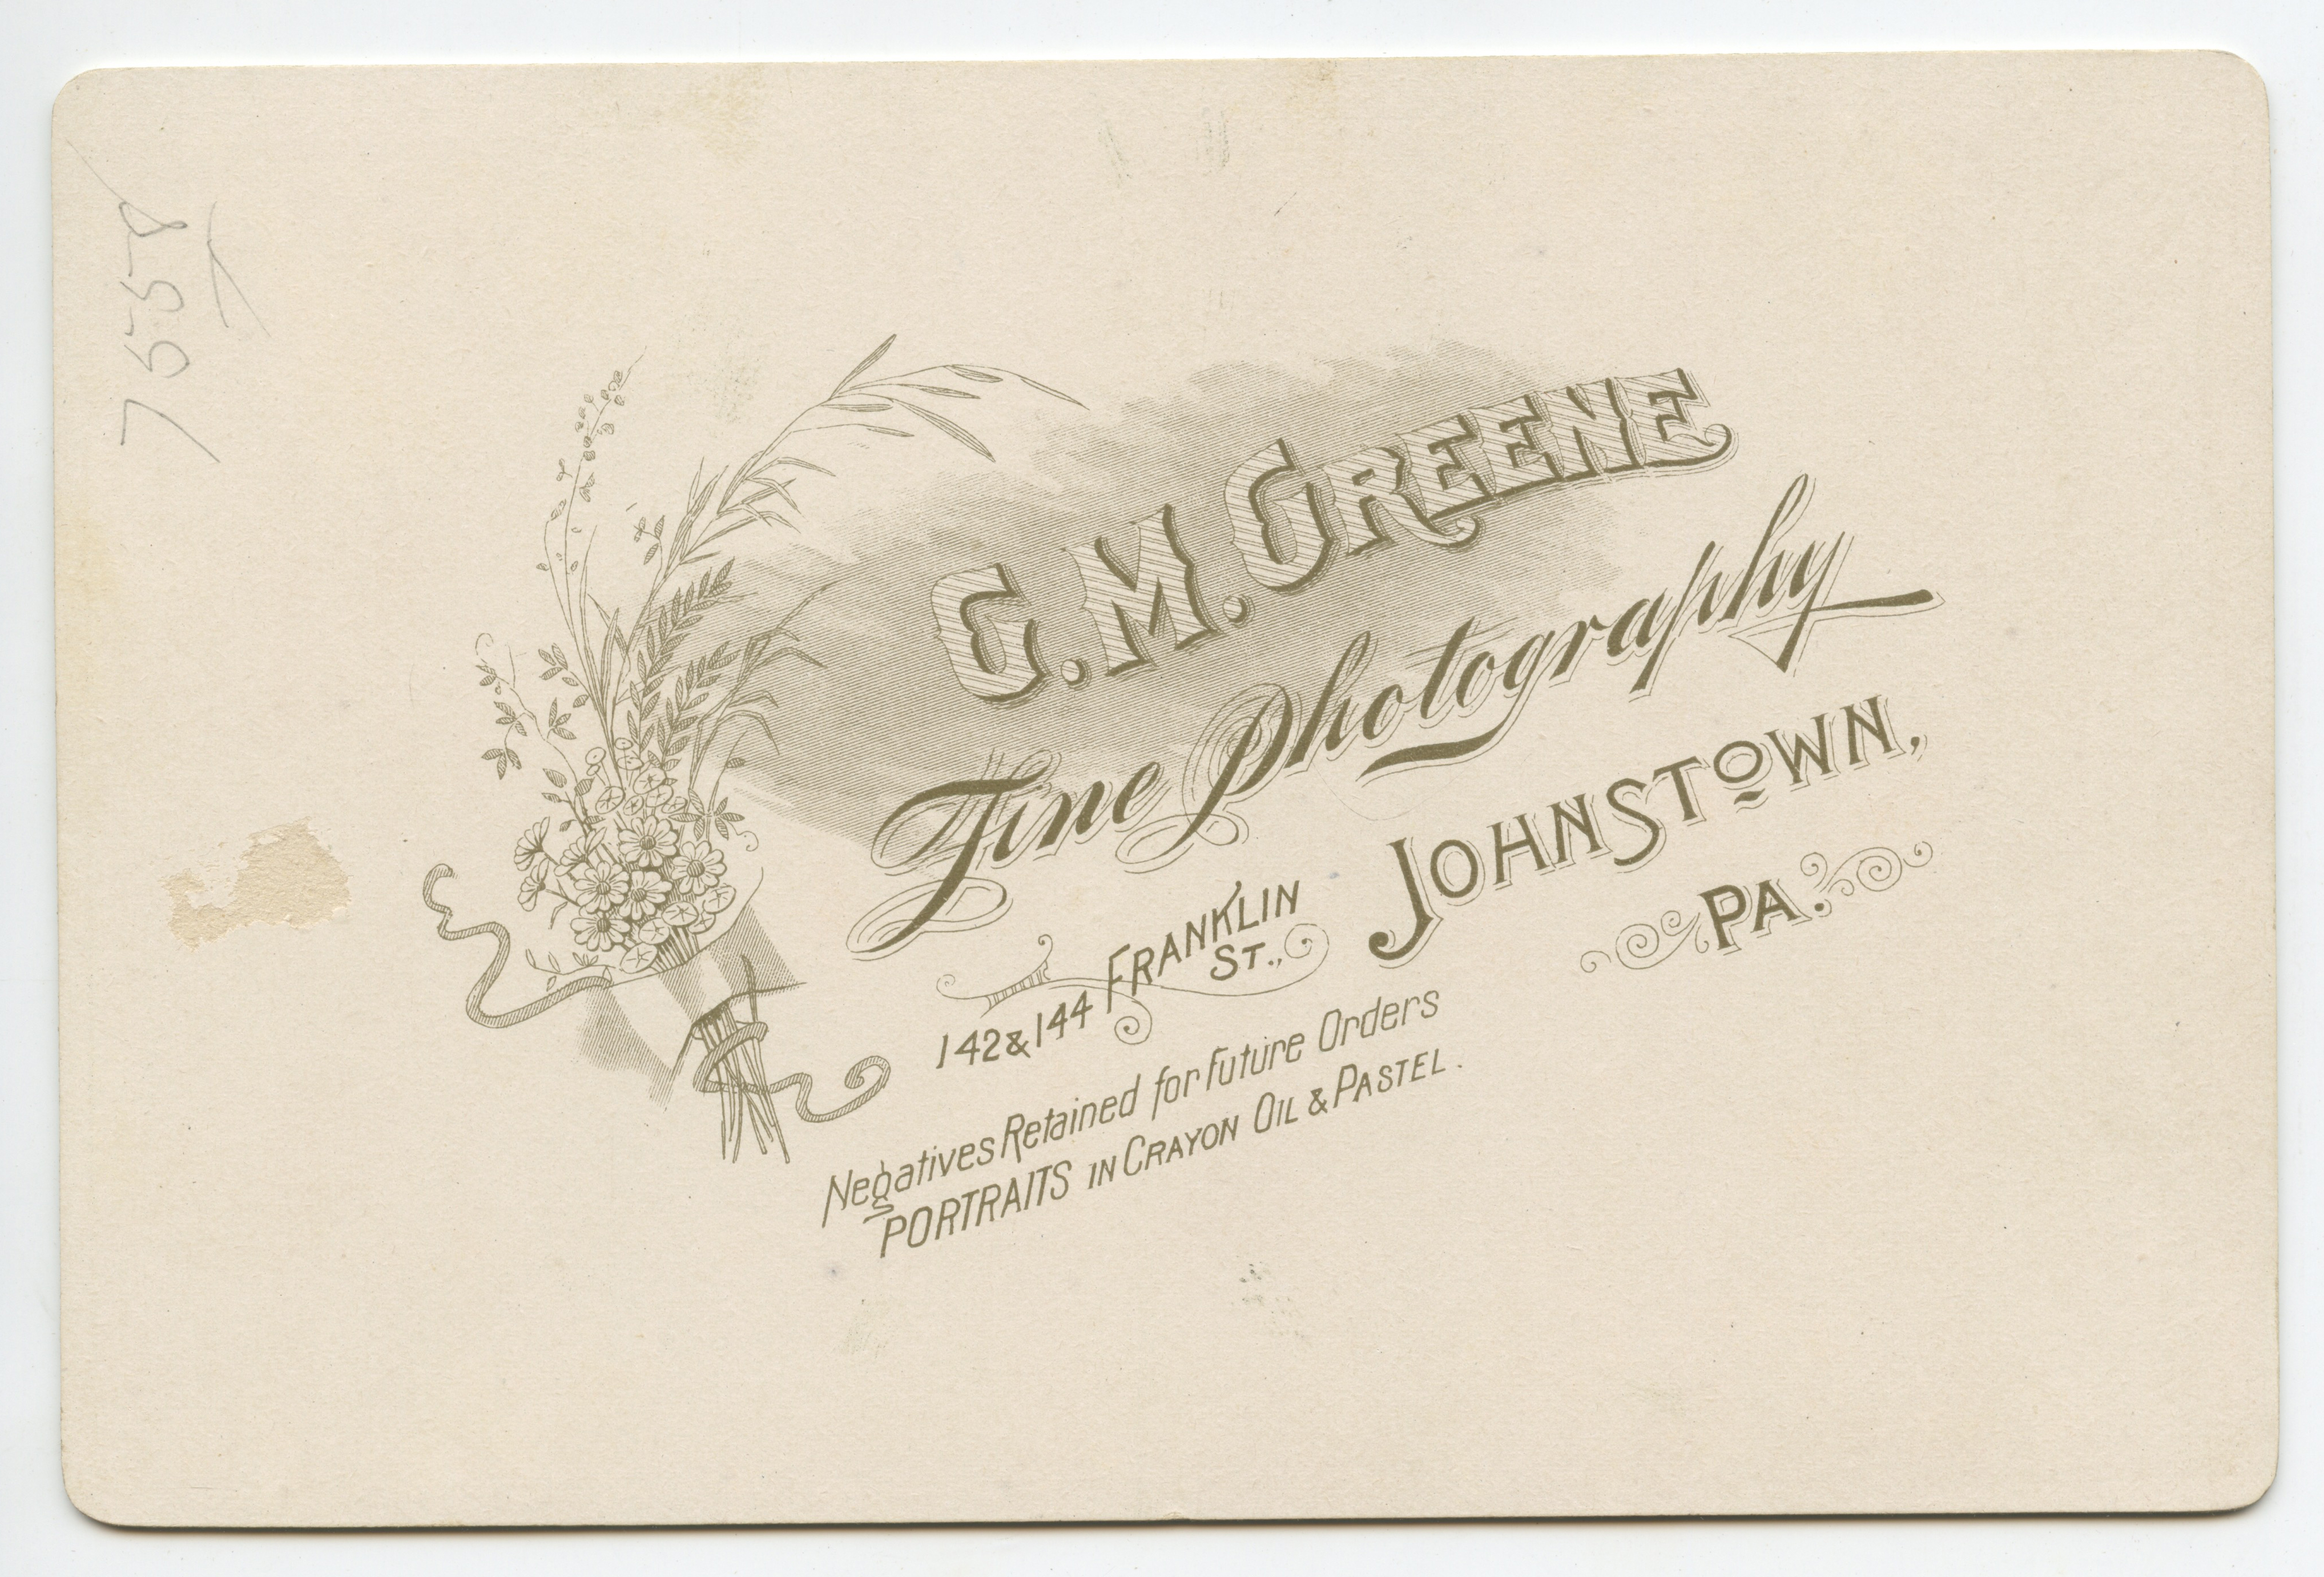 7558
G. M. GREENE
Fine Photography
142 & 144 FRANKLIN ST., JOHNSTOWN,
PA.
Negatives Retained for Future Orders
PORTRAITS IN CRAYON OIL & PASTEL.